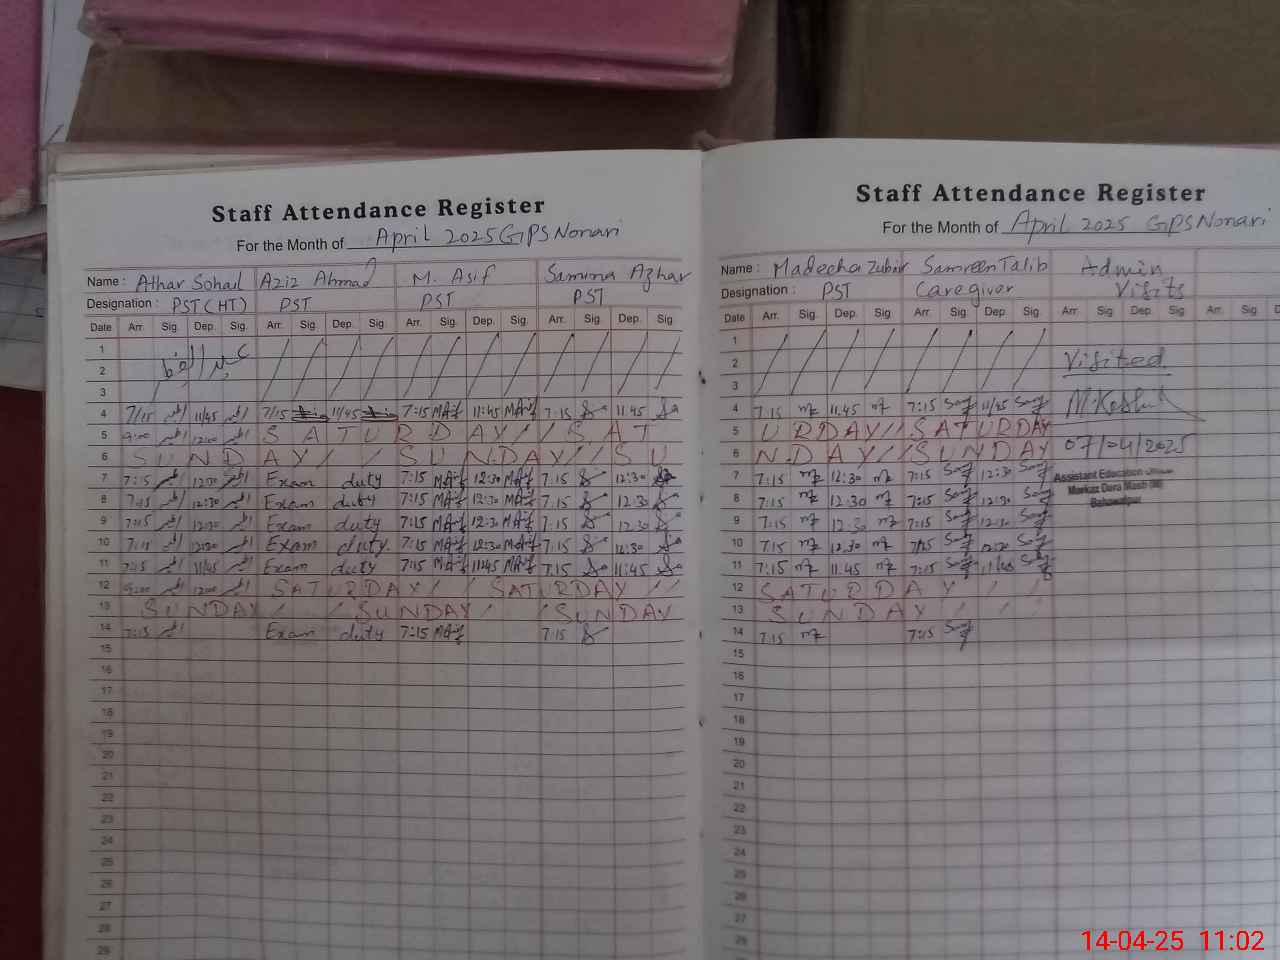 Staff Attendance Register
For the Month of April 2025 GPS Nonari
Name : Athar Sohail Aziz Ahmad M. Asif Samina Azhar
Designation : PST (HT) PST PST PST
Date Arr. Sig. Dep. Sig. Arr. Sig. Dep. Sig. Arr. Sig. Dep. Sig. Arr. Sig. Dep. Sig
1
2 عید الفطر
3
4 7/15 11/45 7/15 11/45 7:15 M.Asif 11:45 M.Asif 7:15 11:45
5 9:00 12:00 SATURDAY // SAT
6 SUNDAY // SUNDAY // SU
7 7:15 12:30 Exam duty 7:15 M.Asif 12:30 M.Asif 7:15 12:30
8 7:15 12:30 Exam duty 7:15 M.Asif 12:30 M.Asif 7:15 12:30
9 7:15 12:30 Exam duty 7:15 M.Asif 12:30 M.Asif 7:15 12:30
10 7:15 12:30 Exam duty. 7:15 M.Asif 12:30 M.Asif 7:15 12:30
11 7:15 11/45 Exam duty 7:15 M.Asif 11:45 M.Asif 7:15 11:45
12 9:00 12:00 SATURDAY // SATURDAY //
13 SUNDAY // SUNDAY / SUNDAY
14 7:15 Exam duty 7:15 M.Asif 7:15
15
16
17
18
19
20
21
22
23
24
25
26
27
28
29
Staff Attendance Register
For the Month of April 2025 GPS Nonari
Name : Madeeha Zubair Samreen Talib Admin
Designation : PST Caregiver Visits
Date Arr. Sig. Dep. Sig Arr. Sig. Dep Sig. Arr Sig Dep Sig Arr. Sig
1
2 Visited
3
4 7:15 11.45 7:15 11/45
5 URDAY // SATURDAY
6 NDAY // SUNDAY 07/04/2025
7 7:15 12:30 7:15 12:30
Assistant Education
Markaz Dera
Bahawalpur
8 7:15 12:30 7:15 12:30
9 7:15 12:30 7:15 12:30
10 7:15 12.30 7:15 12:30
11 7:15 11.45 7:15 11/45
12 SATURDAY //
13 SUNDAY //
14 7:15 7:15
15
16
17
18
19
20
21
22
23
24
25
26
27
28
29
14-04-25 11:02